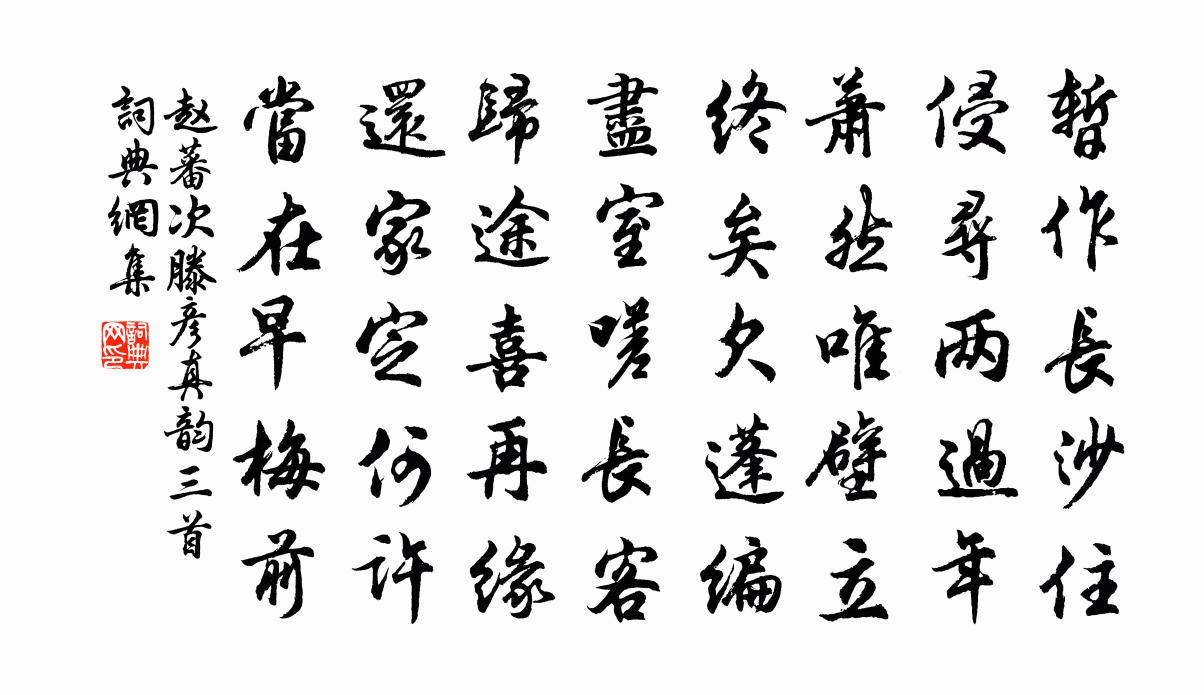 暫作長沙住
侵尋兩過年
蕭然唯壁立
終矣欠蓬編
盡室嗟長客
歸途喜再緣
還家定何許
當在早梅前
赵蕃次滕彦真韵三首
詞典網集
詞典
网印